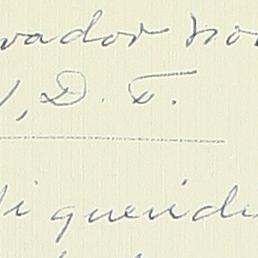 vador no
, D. F.
i querid